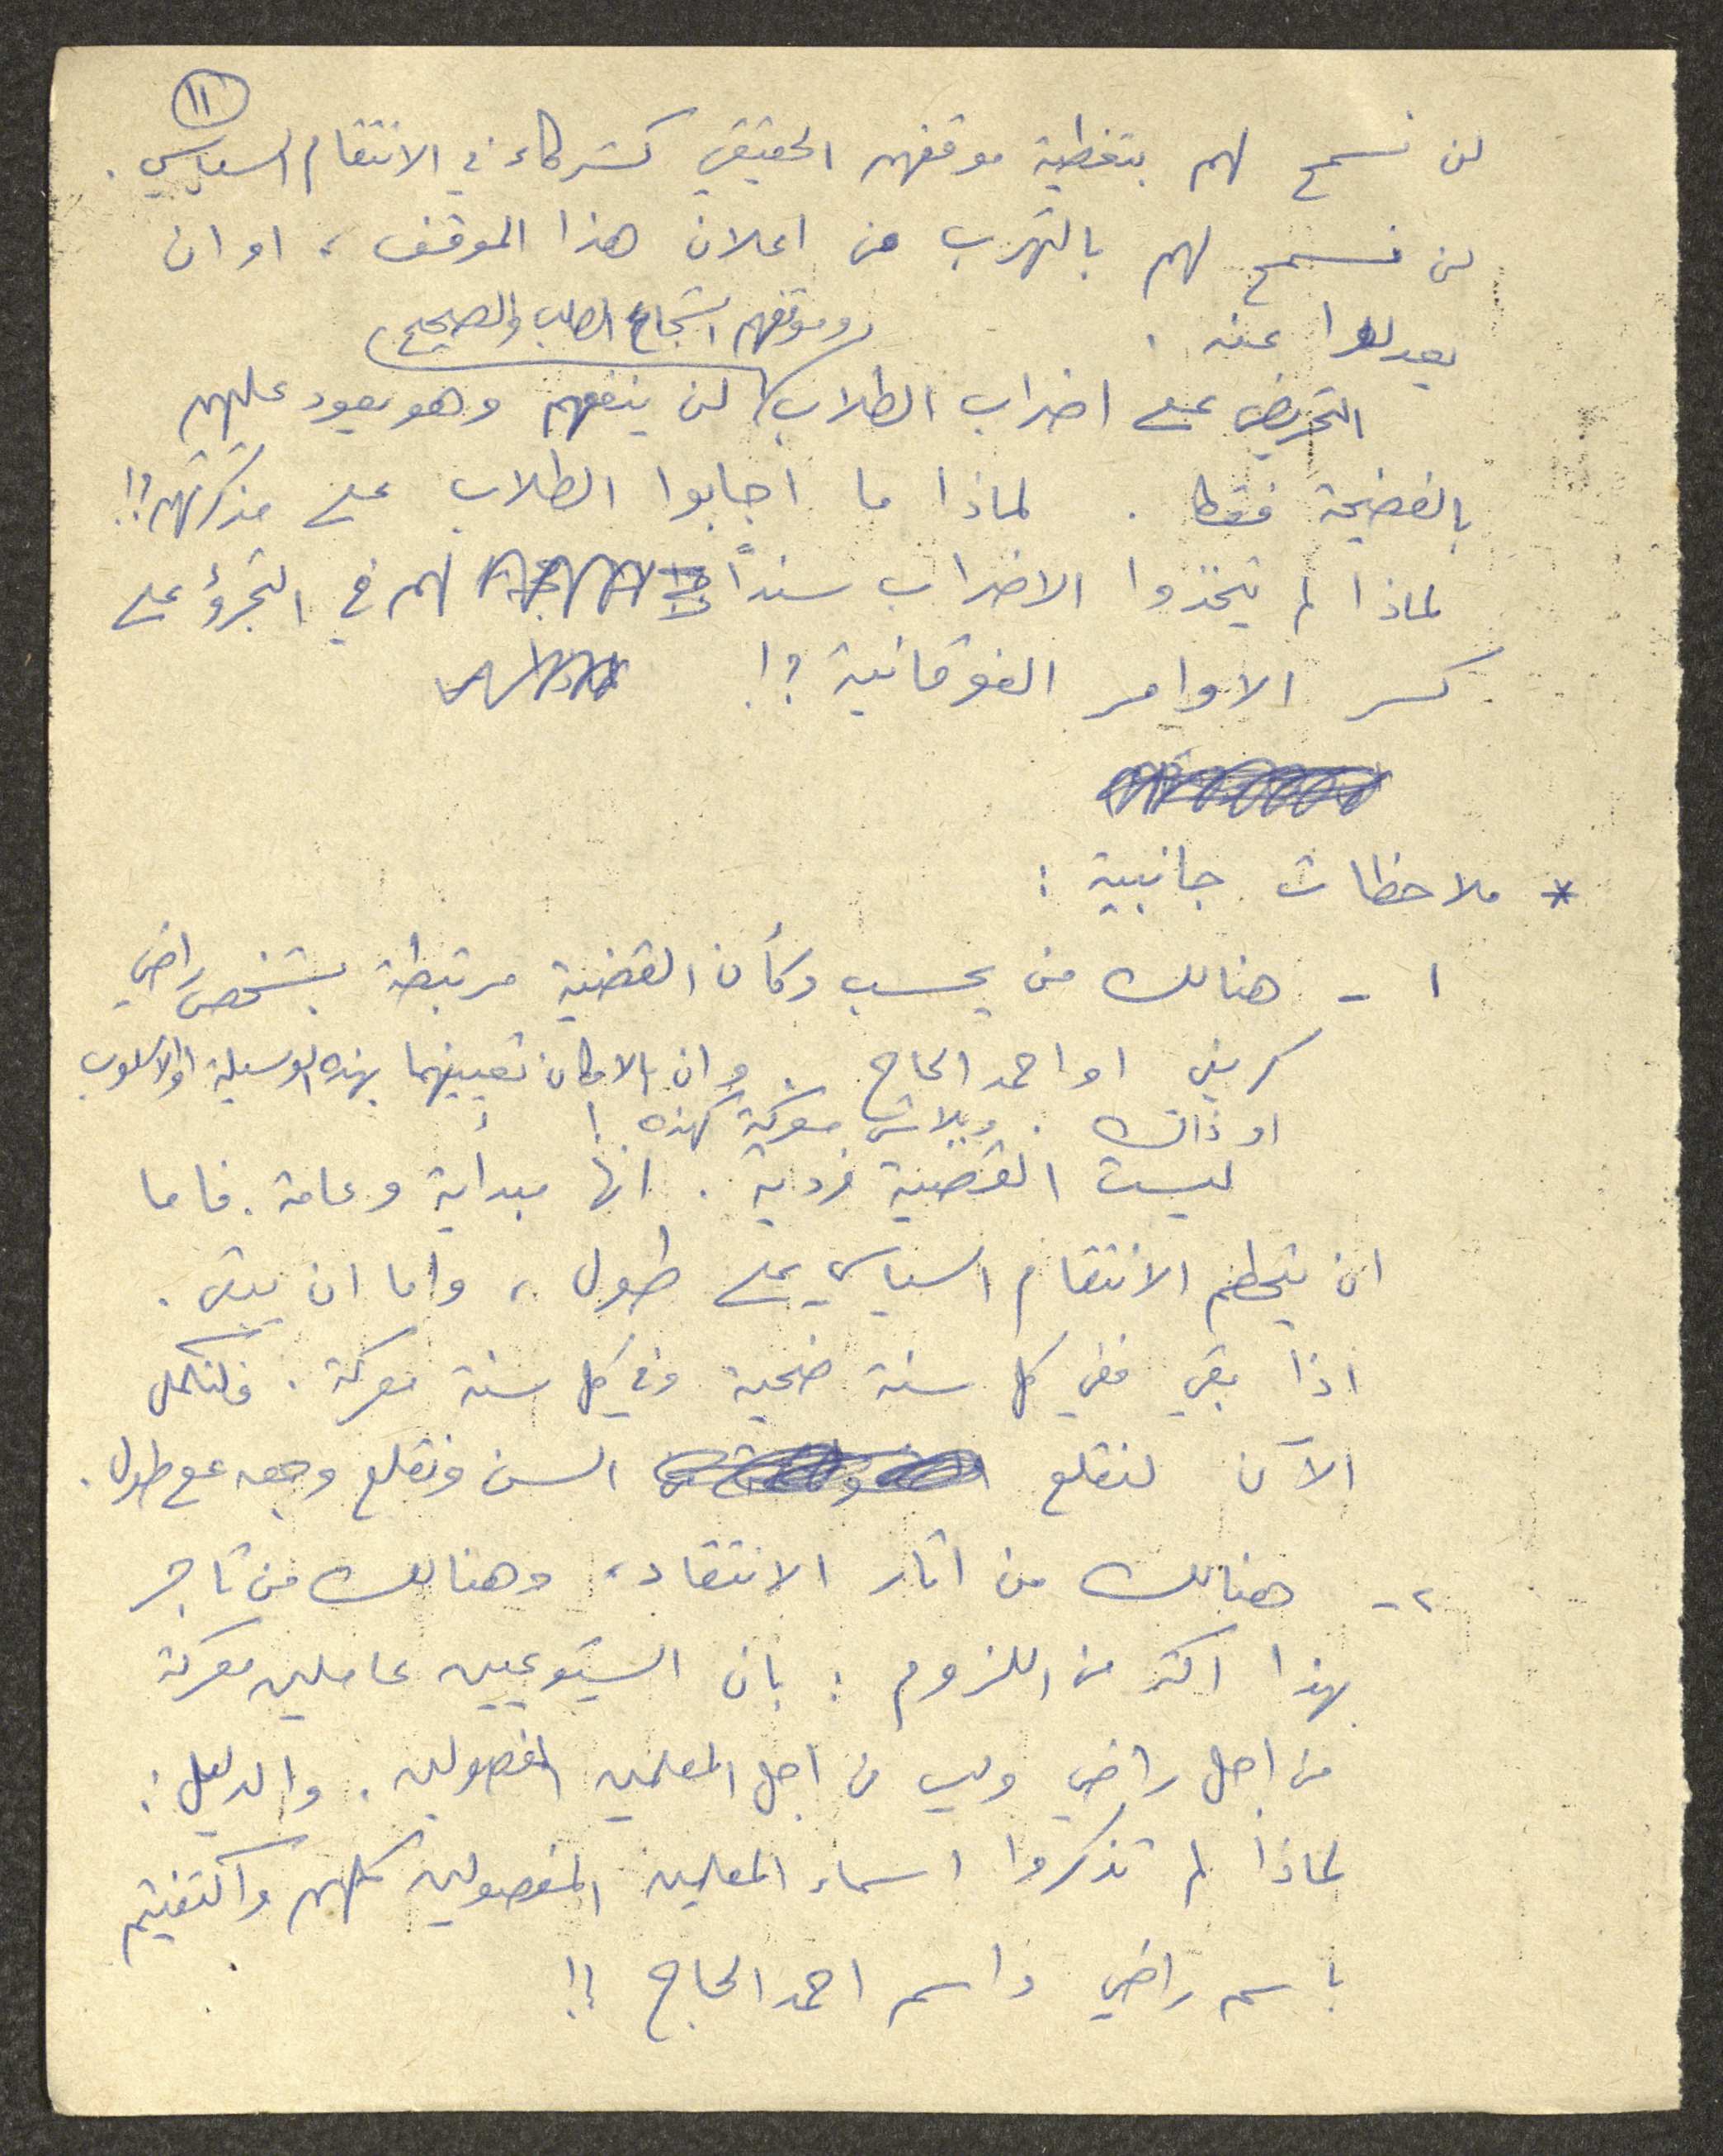 ١١
لن نسمح لهم بتغطية موقفهم الحقيقي كشركاء في الانتقام السياسي .
لن نسمح لهم بالتهرب من اعلان هذا الموقف ، او ان
يعدلوا عنه .
وموقفهم الشجاع الصلب والصحيح
التحريض على اضراب الطلاب لن ينفعهم وهو يعود عليهم
بالفضيحة فقط . لماذا ما اجابوا الطلاب على مذكرتهم ؟!
لماذا لم يتخذوا الاضراب سنداً لهم في التجرؤ على
كسر الاوامر الفوقانية ؟!
* ملاحظات جانبية :
١ - هنالك من يحسب وكأن القضية مرتبطة بشخص راضي
كريني او احمد الحاج . وان بالامكان تعيينهما بهذه الوسيلة او الاسلوب
او ذاك . وبلاش معركة كهذه !
ليست القضية فردية . انها مبدأية وعامة . فاما
ان يتحطم الانتقام السياسي على طول ، واما ان يبقى .
اذا بقي ففي كل سنة ضحية وفي كل سنة معركة . فلنكمل
الآن لنقلع السن ونقلع وجعه مع طول .
٢ - هنالك من اثار الانتقاد ، وهنالك من تاجر
بهذا اكثر من اللزوم : بان الشيوعيين عاملين معركة
من اجل راضي وليس من اجل المعلمين المفصولين . والدليل :
لماذا لم تذكروا اسماء المعلمين المفصولين كلهم واكتفيتم
باسم راضي واسم احمد الحاج ؟!